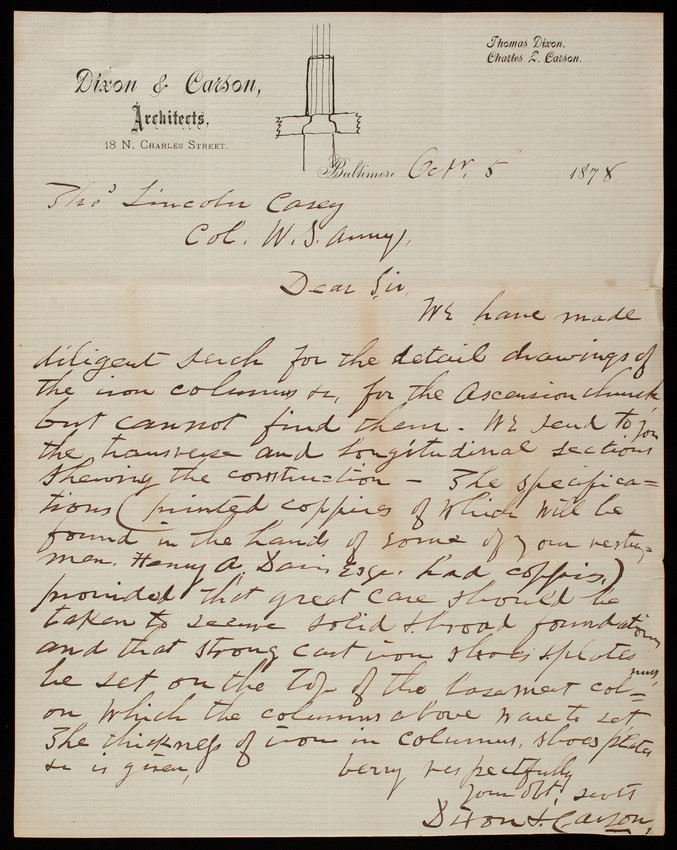 Thomas Dixon.
Charles L. Carson.
Dixon & Carson,
Architects,
18 N. Charles Street.
Baltimore Octr. 5 1878
Thos Lincoln Casey
Col. U. S. Army,
Dear Sir,
We have made
diligent serch for the detail drawings of
the iron columns &c, for the Ascension church
but cannot find them - We send to you
the transverse and longitudinal sections
shewing the construction - The specifica=
tions (printed coppies of which will be
found in the hands of some of your vestry=
men. Henry A. Davis Esqr. had coppies,)
provided that great care should be
taken to secure solid & broad foundations
and that strong cast iron shoes & plates
be set on the top of the basement col=umns,
on which the columns above ware to set
The thickness of iron in columns, shoes plates
&c is given,
berry respectfully
Your obt. servts
Dixon & Carson,